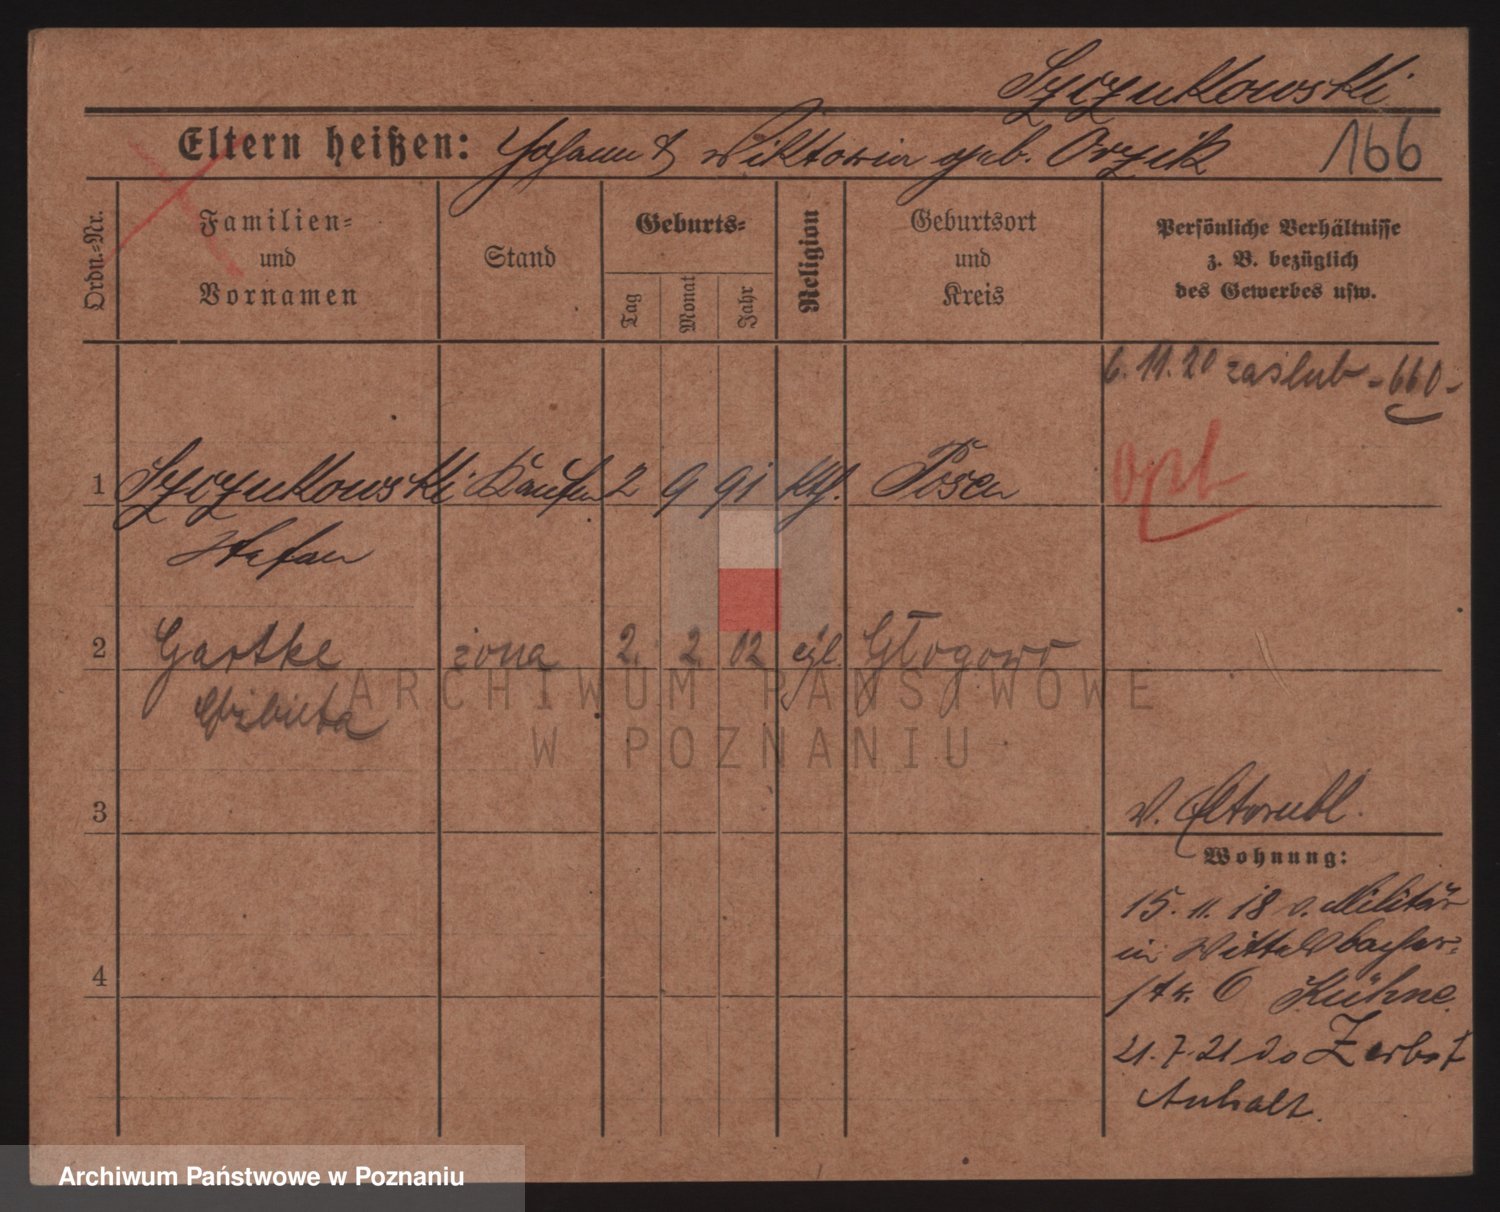 Szczukowski
Eltern heißen: Johann & Wiktoria geb. Orzik 166
Ordn.-Nr.
Familien-
und
Vornamen
Stand
Geburts-
Tag
Monat
Jahr
Religion
Geburtsort
und
Kreis
Persönliche Verhältnisse
z. B. bezüglich
des Gewerbes usw.
6. 11. 20 zaślub - 660 -
1 Szczukowski Kaufm 2 9 91 kth. Posen
Opt
Stefan
2 Gartke żona 2. 2. 02 egl. Głogowo
Elżbieta
3
4
Wohnung:
15. 11. 18 v. Militär
in Wittelsbacher-
str. 6 Kühne
21. 7. 21 do Zerbst
Anhalt.
ARCHIWUM PAŃSTWOWE
W POZNANIU
Archiwum Państwowe w Poznaniu